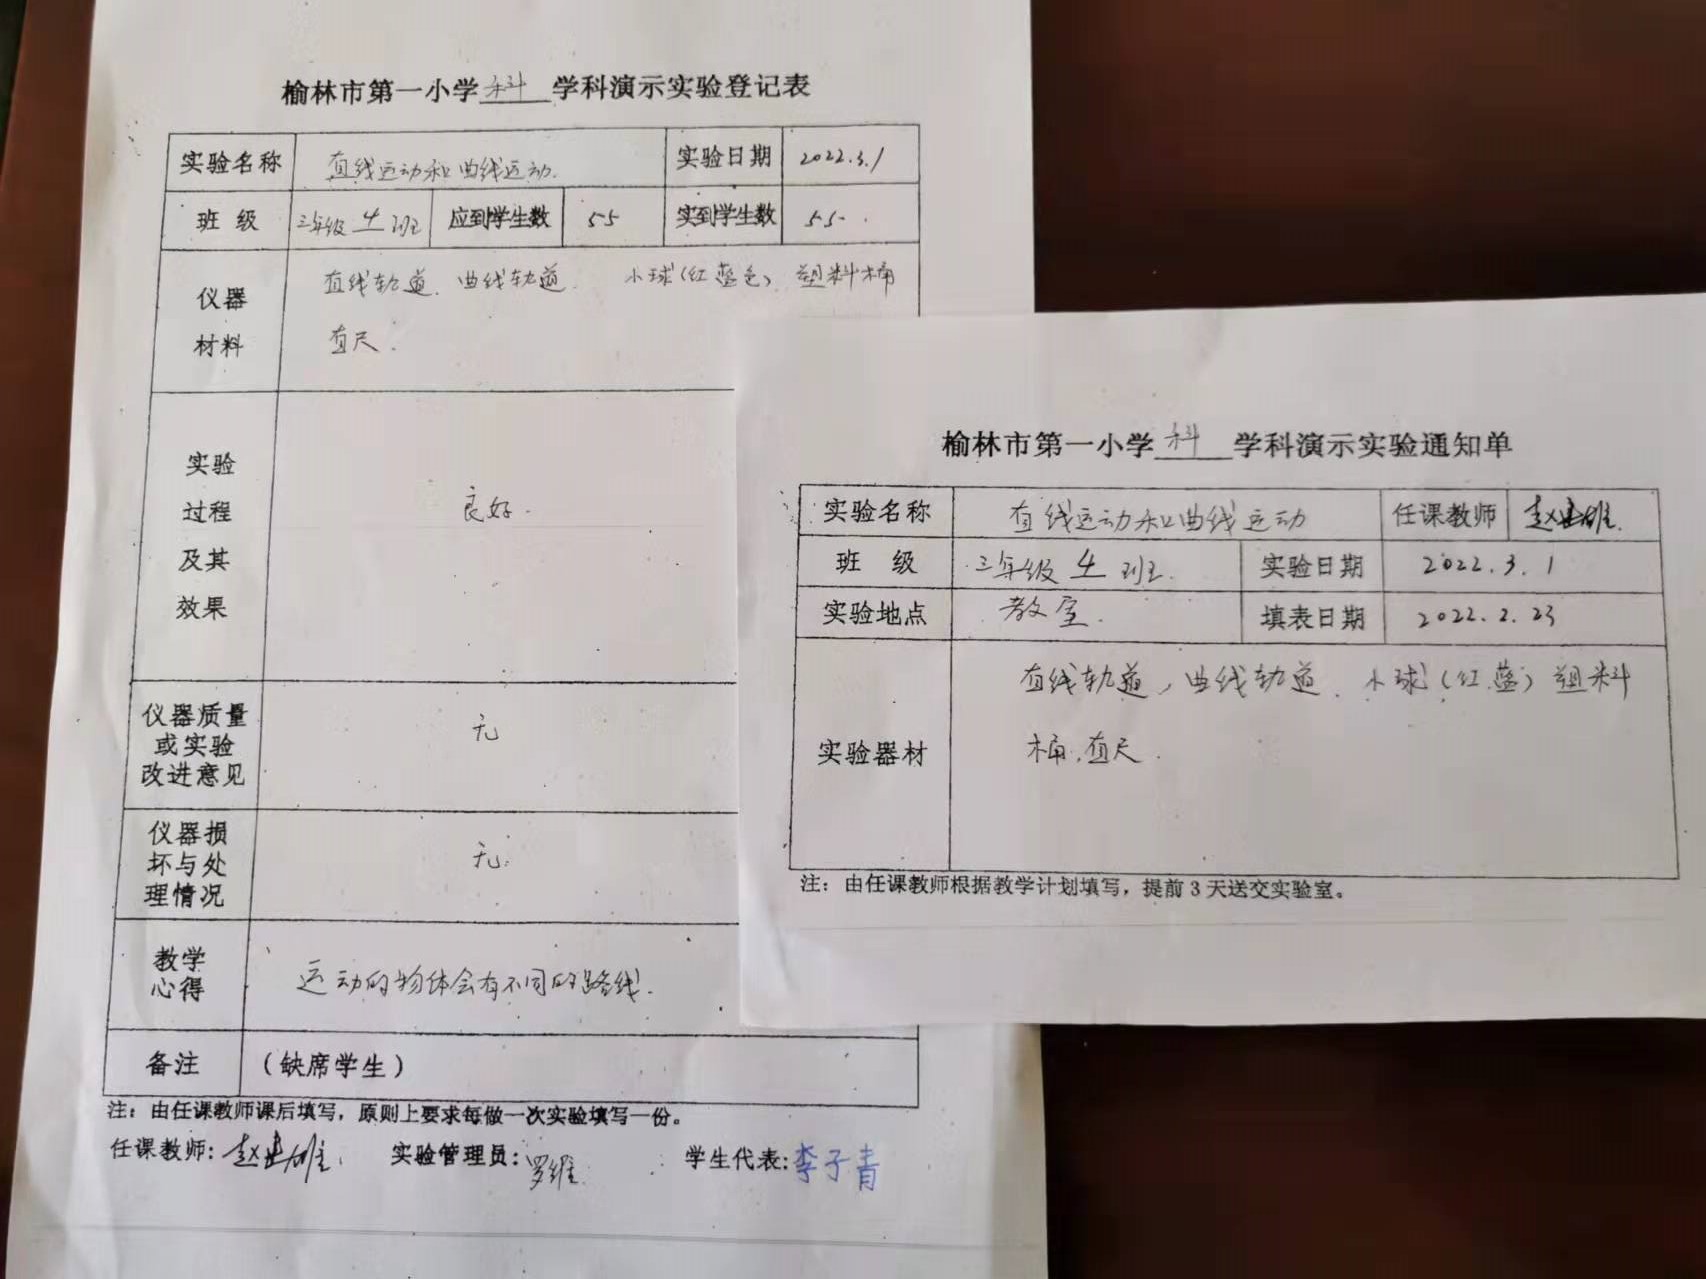 榆林市第一小学 科 学科演示实验登记表
实验名称 直线运动和曲线运动. 实验日期 2022.3.1
班 级 三年级 4 班 应到学生数 55 实到学生数 55.
仪器
材料
直线轨道. 曲线轨道. 小球(红蓝色) 塑料桶
直尺.
实验
过程
及其
效果
良好.
仪器质量
或实验
改进意见
无
仪器损
坏与处
理情况
无.
教学
心得
运动的物体会有不同的路线.
备注 (缺席学生)
注: 由任课教师课后填写, 原则上要求每做一次实验填写一份。
任课教师: 赵建雄. 实验管理员: 罗维. 学生代表: 李子青
榆林市第一小学 科 学科演示实验通知单
实验名称 直线运动和曲线运动 任课教师 赵建雄.
班 级 三年级 4 班. 实验日期 2022.3.1
实验地点 教室. 填表日期 2022.2.23
实验器材
直线轨道, 曲线轨道. 小球(红.蓝) 塑料
桶.直尺.
注: 由任课教师根据教学计划填写, 提前 3 天送交实验室。